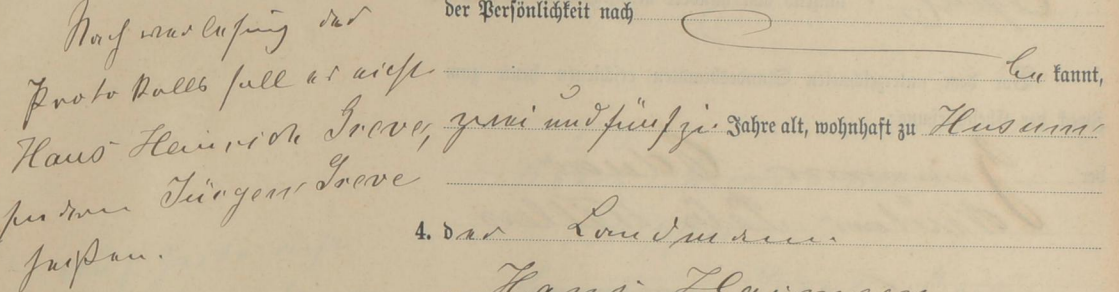 Nach verlesung des
Protokolls soll es nicht
Hans Heinrich Greve,
sondern Jürgen Greve
heißen.
der Persönlichkeit nach
be kannt,
zwei und fünfzig Jahre alt, wohnhaft zu Husum
4. der Landmann
Hans